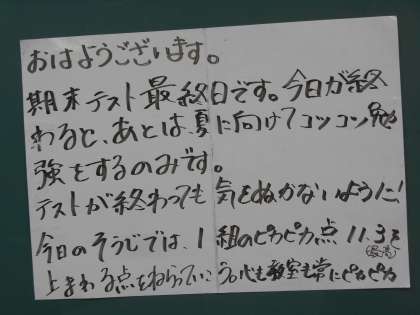 おはようございます。
期末テスト最終日です。今日が終
わると、あとは、夏に向けてコツコツ勉
強をするのみです。
テストが終わっても 気をぬかないように!
今日のそうじでは、1組のピカピカ点 11.3を
(最高)
上まわる点をねらっていこう。心も教室も常にピカピカ